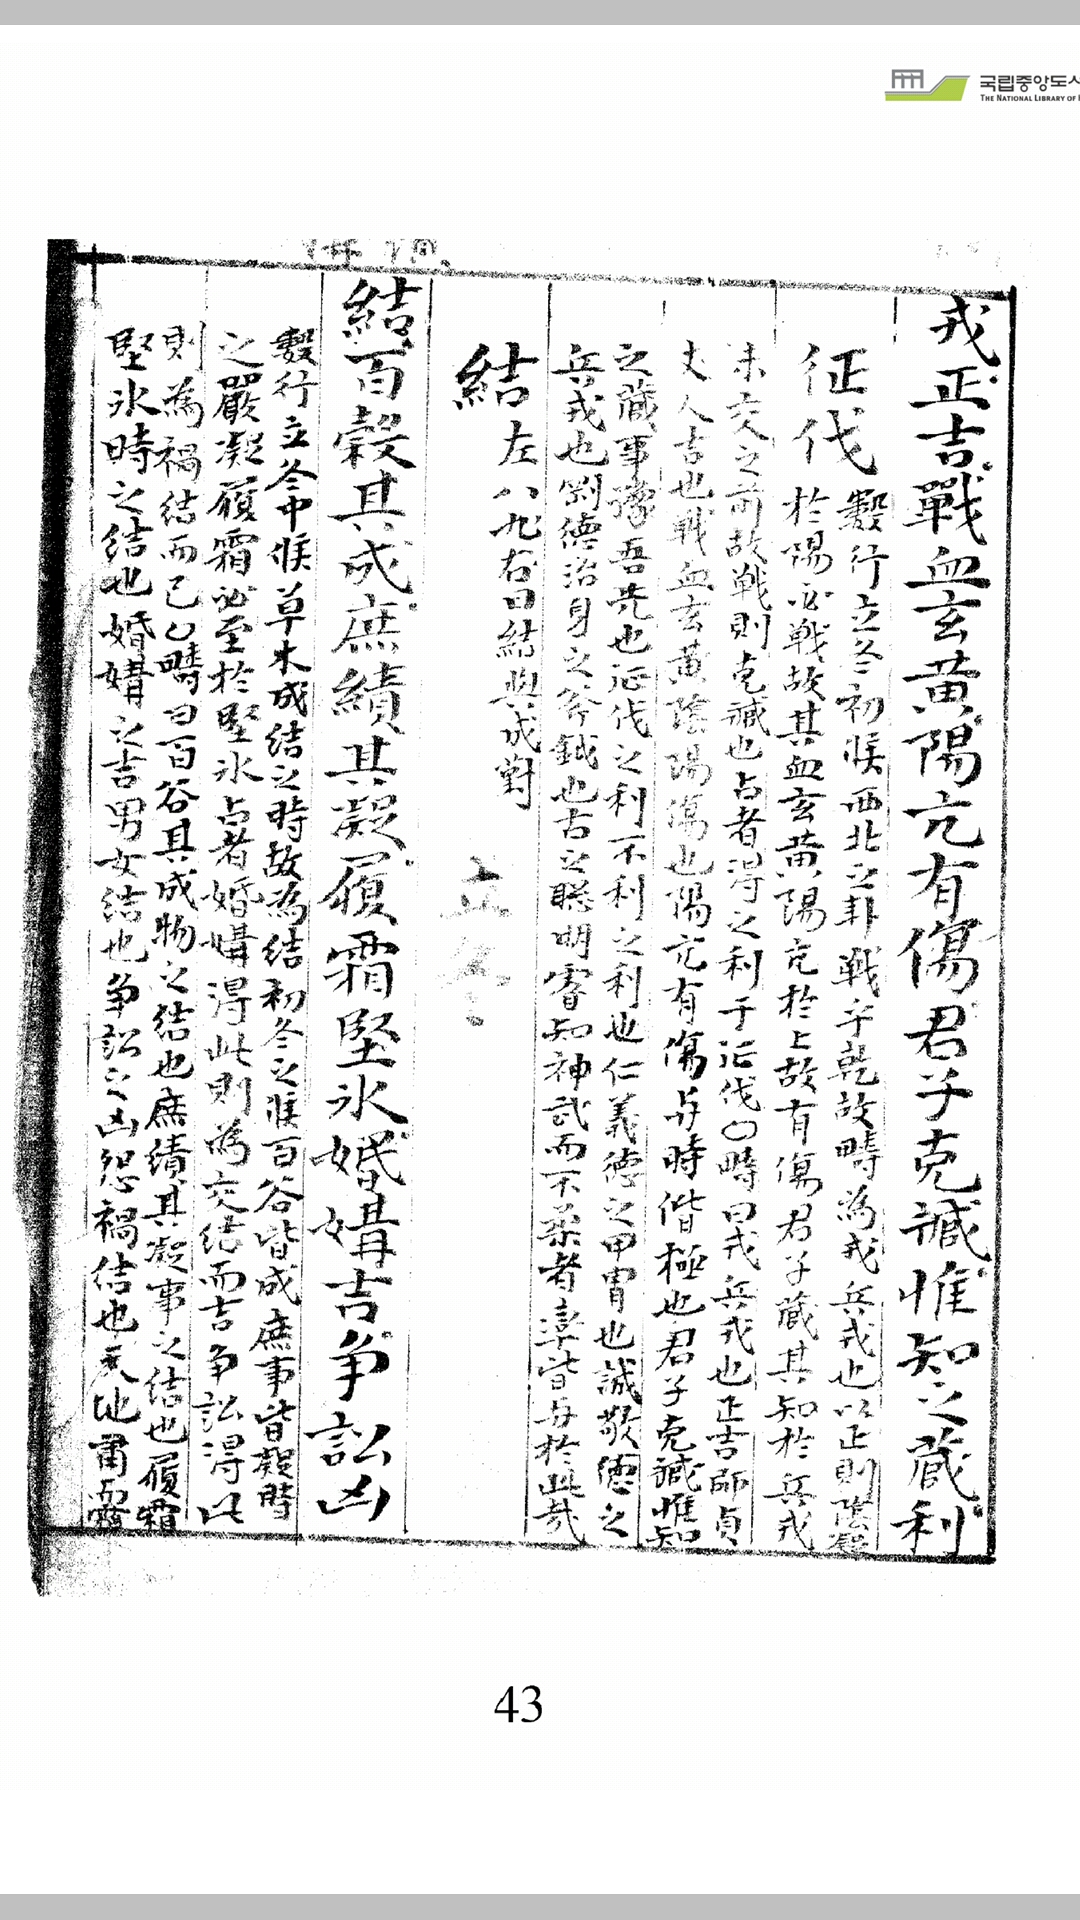 국립중앙도서
THE NATIONAL LIBRARY OF
戎正吉戰血玄黃陽亢有傷君子克臧惟知之蔵利
征伐
數行立冬初候西北之卦戦乎乾故疇為戎兵戎也以正則陰疑
於陽必戦故其血玄黄陽亢於上故有傷君子蔵其知於兵戎
未交之前故戦則克臧也占者得之利于征伐○疇曰戎兵戎也正吉師貞
丈人吉也戦血玄黄陰陽傷也陽亢有傷与時偕極也君子克臧惟知
之蔵事豫吾先也征伐之利不利之利也仁義德之甲冑也誠敬德之
兵戎也剛德治身之斧鉞也古之聡明睿知神武而不柔者率皆与於此哉
結
左八九右曰結與成對
立冬
結百穀其成庶績其凝履霜堅氷婚媾吉争訟凶
數行立冬中候草木成結之時故為結初冬之候百谷皆成庶事皆凝時
之嚴凝履霜必至於堅氷占者婚媾得此則為交結而吉争訟得此
則為禍結而已○疇曰百谷其成物之結也庶績其凝事之結也履霜
堅氷時之結也婚媾之吉男女結也争訟之凶怨禍結也天地肅而露
43